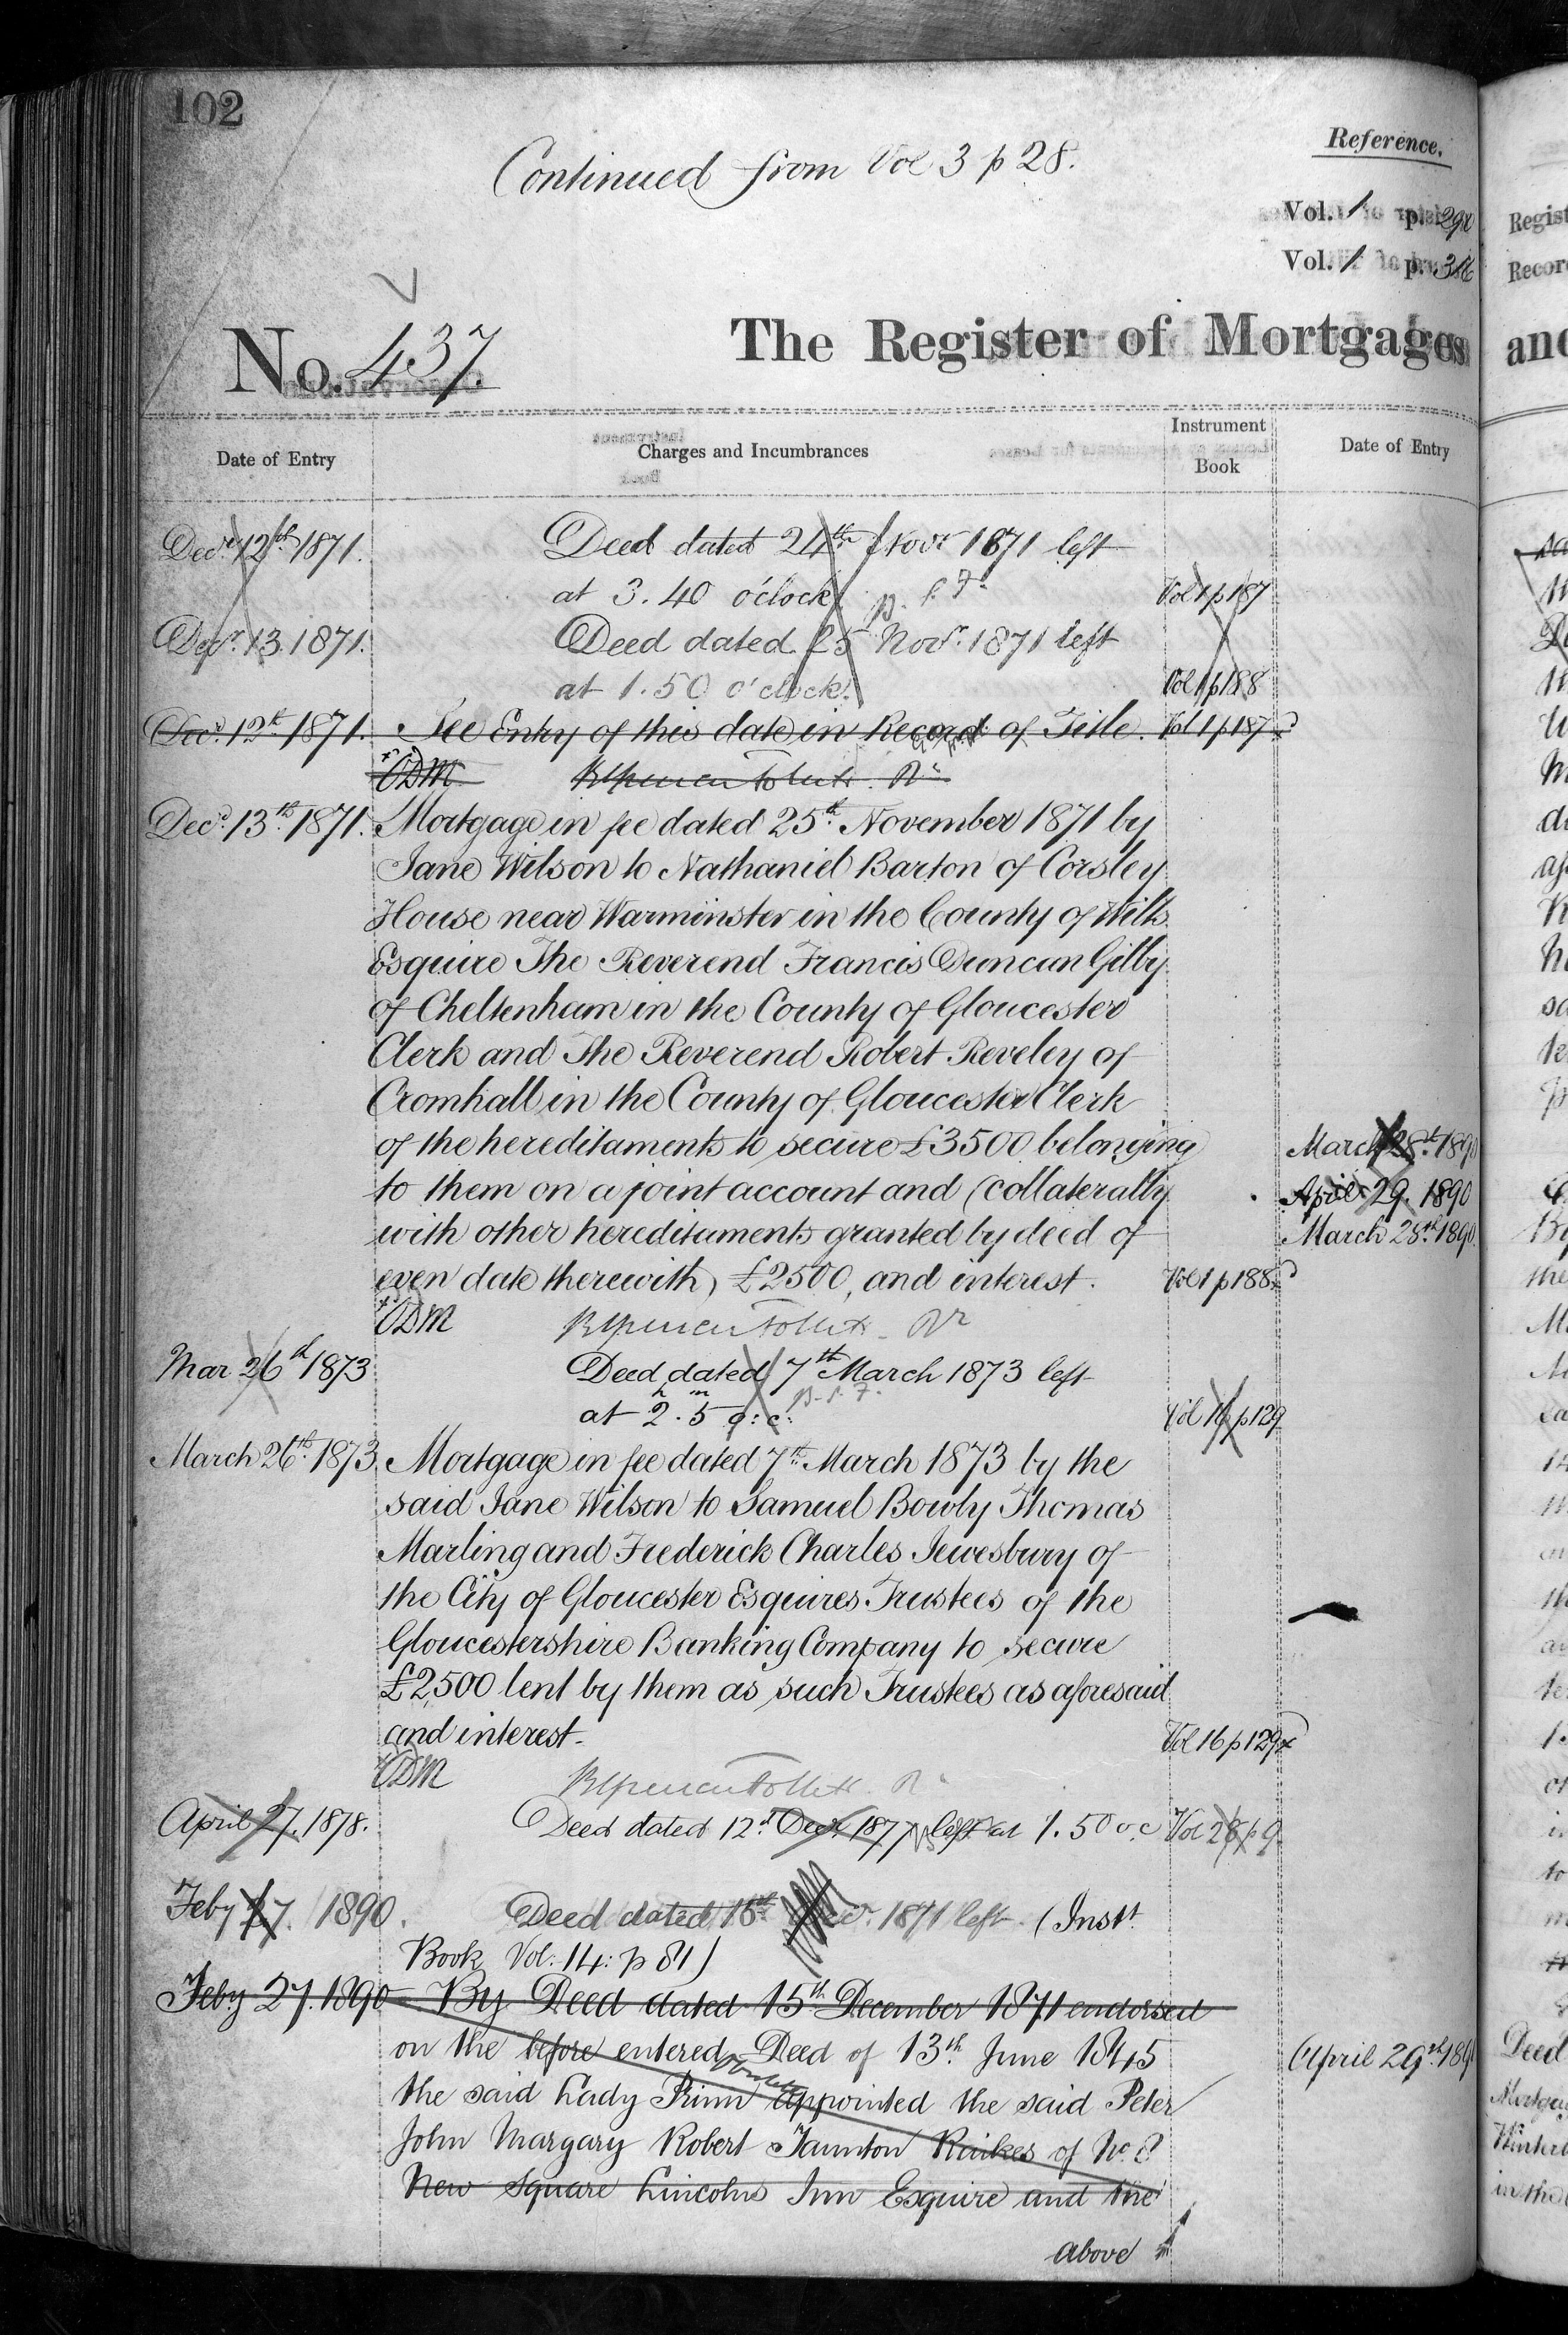 102
Continued from Vol 3 p 28.
Reference.
Vol. 1 p. 290
Vol. 1 p. 316
No. 437.
The Register of Mortgages
Date of Entry
Charges and Incumbrances
Instrument
Book
Date of Entry
Decr. 12th 1871. Deed dated 24th Novr 1871 left
at 3.40 o'clock Vol 1 p 187
Decr. 13. 1871. Deed dated 25 Novr. 1871 left
at 1.50 o'clock. Vol 1 p 188
Decr. 12th 1871. See Entry of this date in Record of Title. Vol 1 p 187
ODM
Decr. 13th 1871. Mortgage in fee dated 25th November 1871 by
Jane Wilson to Nathaniel Barton of Corsley
House near Warminster in the County of Wilts
Esquire The Reverend Francis Duncan Gilby
of Cheltenham in the County of Gloucester
Clerk and The Reverend Robert Reveley of
Cromhall in the County of Gloucester Clerk
of the hereditaments to secure £3500 belonging
March 28th 1890
to them on a joint account and (collaterally
April 29. 1890
with other hereditaments granted by deed of
March 28th 1890.
even date therewith) £2500, and interest. Vol 1 p 188
ODM
Mar 26th 1873 Deed dated 7th March 1873 left
at 2h. 5m o:c: Vol 16 p 129
March 26th 1873 Mortgage in fee dated 7th March 1873 by the
said Jane Wilson to Samuel Bowly Thomas
Marling and Frederick Charles Jewesbury of
the City of Gloucester Esquires Trustees of the
Gloucestershire Banking Company to secure
£2,500 lent by them as such Trustees as aforesaid
and interest. Vol 16 p 129
ODM
April 27. 1878. Deed dated 12th Decr 1877 left at 1.50 o.c Vol 28 p 9.
Feby 27. 1890. Deed dated 15th Decr. 1871 left (Inst
Book Vol: 14: p 81)
Feby 27. 1890 By Deed dated 15th December 1871 endorsed
on the before entered Deed of 13th June 1845
April 29th 189
the said Lady Prinn appointed the said Peter
John Margary Robert Taunton Raikes of No. 8
New Square Lincolns Inn Esquire and the
above